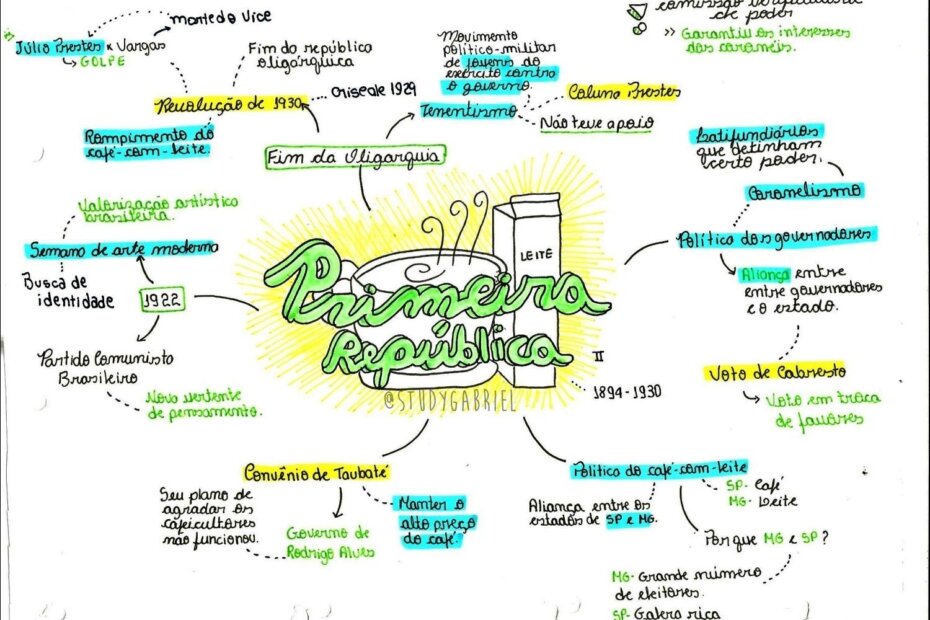 comissão verificadora
de poder
>> Garantiu os interesses
dos coronéis.
morte do Vice
Júlio Prestes x Vargas
GOLPE
Fim da república
oligárquica
Revolução de 1930
Crise de 1929
Rompimento do
café-com-leite.
Fim da Oligarquia
Movimento
político-militar
de jovens do
exército contra
o governo.
Tenentismo
Coluna Prestes
Não teve apoio
Latifundiários
que detinham
certo poder.
Coronelismo
Política dos governadores
Aliança entre
entre governadores
e o estado.
Voto de Cabresto
Voto em troca
de favores
Valorização artística
brasileira.
Semana de arte moderna
Busca de
identidade
1922
Partido Comunista
Brasileiro
Nova vertente
de pensamento.
LEITE
Primeira
República II
1894-1930
@STUDYGABRIEL
Convênio de Taubaté
Seu plano de
agradar os
cafeicultores
não funcionou.
Governo de
Rodrigo Alves
Manter o
alto preço
do café.
Política do café-com-leite
SP- Café
MG- Leite
Aliança entre os
estados de SP e MG.
Por que MG e SP?
MG- Grande número
de eleitores.
SP- Galera rica